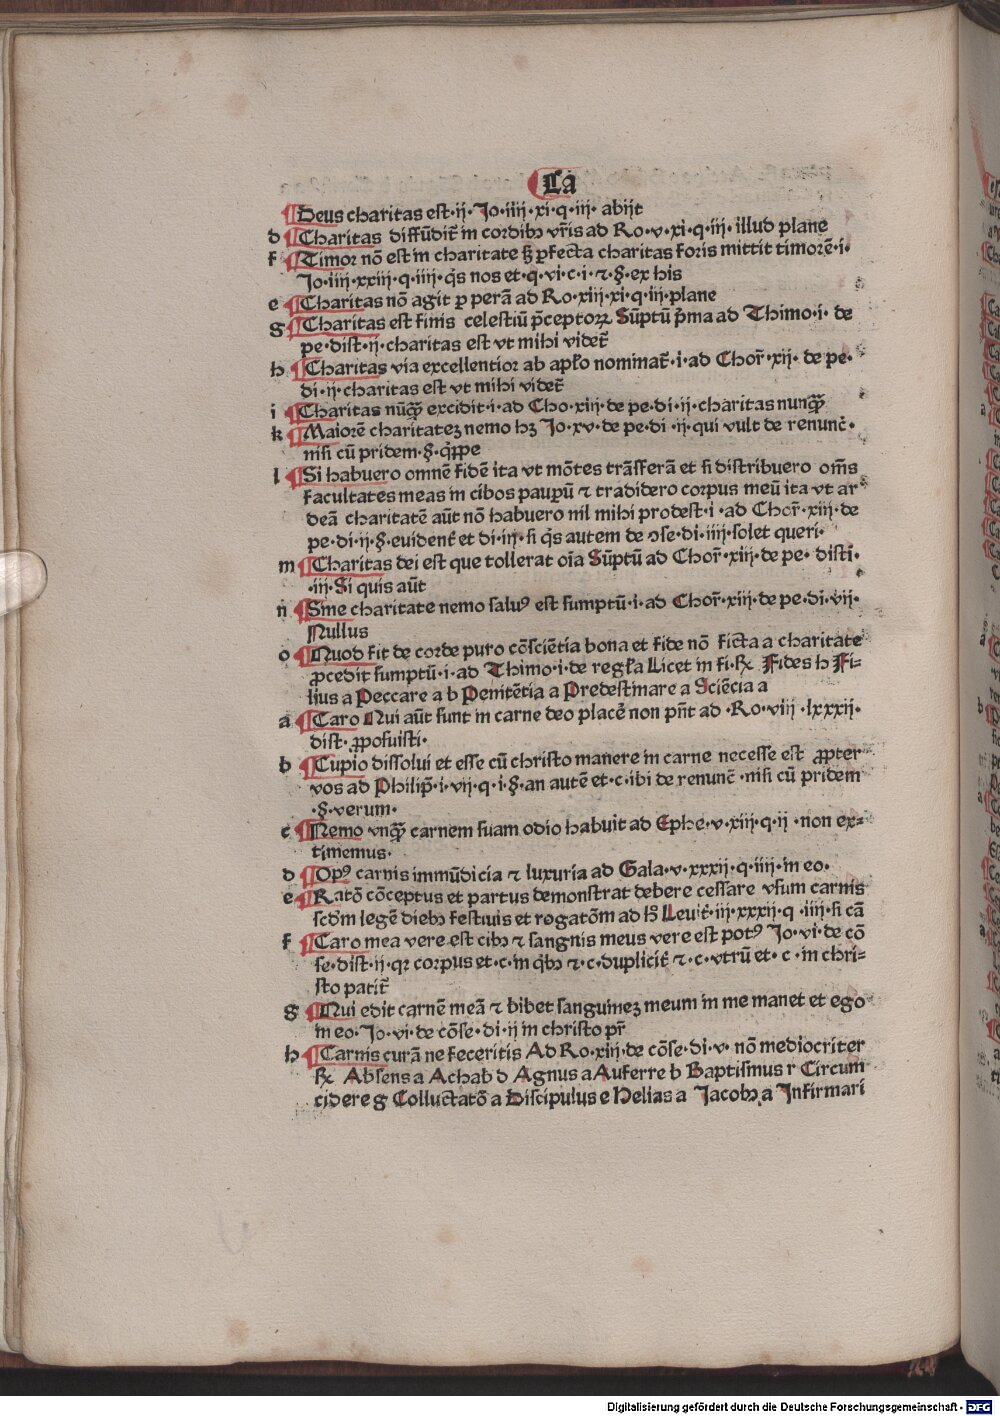 Ca
Deus charitas est·ij·Jo·iiij·xi·q·iij· abijt
d Charitas diffūdit̄ in cordibꝫ vr̄is ad Ro·v·xi·q·iij·illud plane
f Timor nō est in charitate sꝫ ꝑfecta charitas foris mittit timorē·i·
Jo·iiij·xxiij·q·iiij·q̇s nos et·q·vi·c·i·⁊·§·ex his
e Charitas nō agit ꝑ perā ad Ro·xiij·xi·q·iij·plane
g Charitas est finis celestiū p̄ceptoꝝ Sūptū p̄ma ad Thimo·i· de
pe·dist·ij·charitas est vt mihi videt̄
h Charitas via excellentior ab apl̄o nominat̄·i·ad Chor̄·xij· de pe·
di·ij·charitas est vt mihi videt̄
i Charitas nūqꝫ̄ excidit·i·ad Cho·xiij·de pe·di·ij·charitas nunqꝫ̄
k Maiorē charitateꝫ nemo hꝫ Jo·xv·de pe·di·ij·qui vult de renunc̄·
nisi cū pridem·§·q̇ppe
l Si habuero omnē fidē ita vt mōtes trāsferā et si distribuero om̄s
facultates meas in cibos pauꝑū ⁊ tradidero corpus meū ita vt ar
deā charitatē aūt nō habuero nil mihi prodest·i·ad Chor̄·xiij·de
pe·di·ij·§·euident̄ et di·iij·si q̇s autem de ↄse·di·iiij·solet queri·
m Charitas dei est que tollerat oīa Sūptū ad Chor̄·xiij·de pe· disti·
·iij·Si quis aūt
n Sine charitate nemo saluꝰ est sumptū·i·ad Chor̄·xiij·de pe·di·vij·
Nullus
o Quod fit de corde puro cōsciētia bona et fide nō ficta a charitate
ꝓcedit sumptū·i·ad Thimo·i·de regl̄a Licet in fi·℟ Fides h Fi-
lius a Peccare a b Penitētia a Predestinare a Sciēcia a
a Caro Qui aūt sunt in carne deo placē non pn̄t ad·Ro·viij·lxxxij·
dist·ꝓposuisti·
b Cupio dissolui et esse cū christo manere in carne necesse est ꝓpter
vos ad Philip̄·i·vij·q·i·§·an autē et·c·ibi de renunc̄·nisi cū pridem
·§·verum·
c Nemo vnqꝫ̄ carnem suam odio habuit ad Ephe·v·xiij·q·ij·non ex-
timemus·
d Opꝰ carnis immūdicia ⁊ luxuria ad Gala·v·xxxij·q·iiij·in eo·
e Ratō cōceptus et partus demonstrat debere cessare vsum carnis
scd̄m legē diebꝫ festiuis et rogatōm ad hꝫ Leuit̄·iij·xxxij·q·iiij·si cā
f Caro mea vere est cibꝫ ⁊ sangnis meus vere est potꝰ Jo·vi·de cō
se·dist·ij·qꝛ corpus et·c·in q̇bꝫ ⁊·c·duplicit̄ ⁊·c·vtrū et·c·in chri-
sto patit̄
g Qui edit carnē meā ⁊ bibet sanguineꝫ meum in me manet et ego
in eo·Jo·vi·de cōse·di·ij in christo pr̄
h Carnis curā ne feceritis Ad Ro·xiij·de cōse·di·v·nō mediocriter
℟ Absens a Achab d Agnus a Auferre b Baptismus r Circum
cidere g Colluctatō a Discipulus e Helias a Jacobꝫ a Infirmari
Digitalisierung gefördert durch die Deutsche Forschungsgemeinschaft - DFG